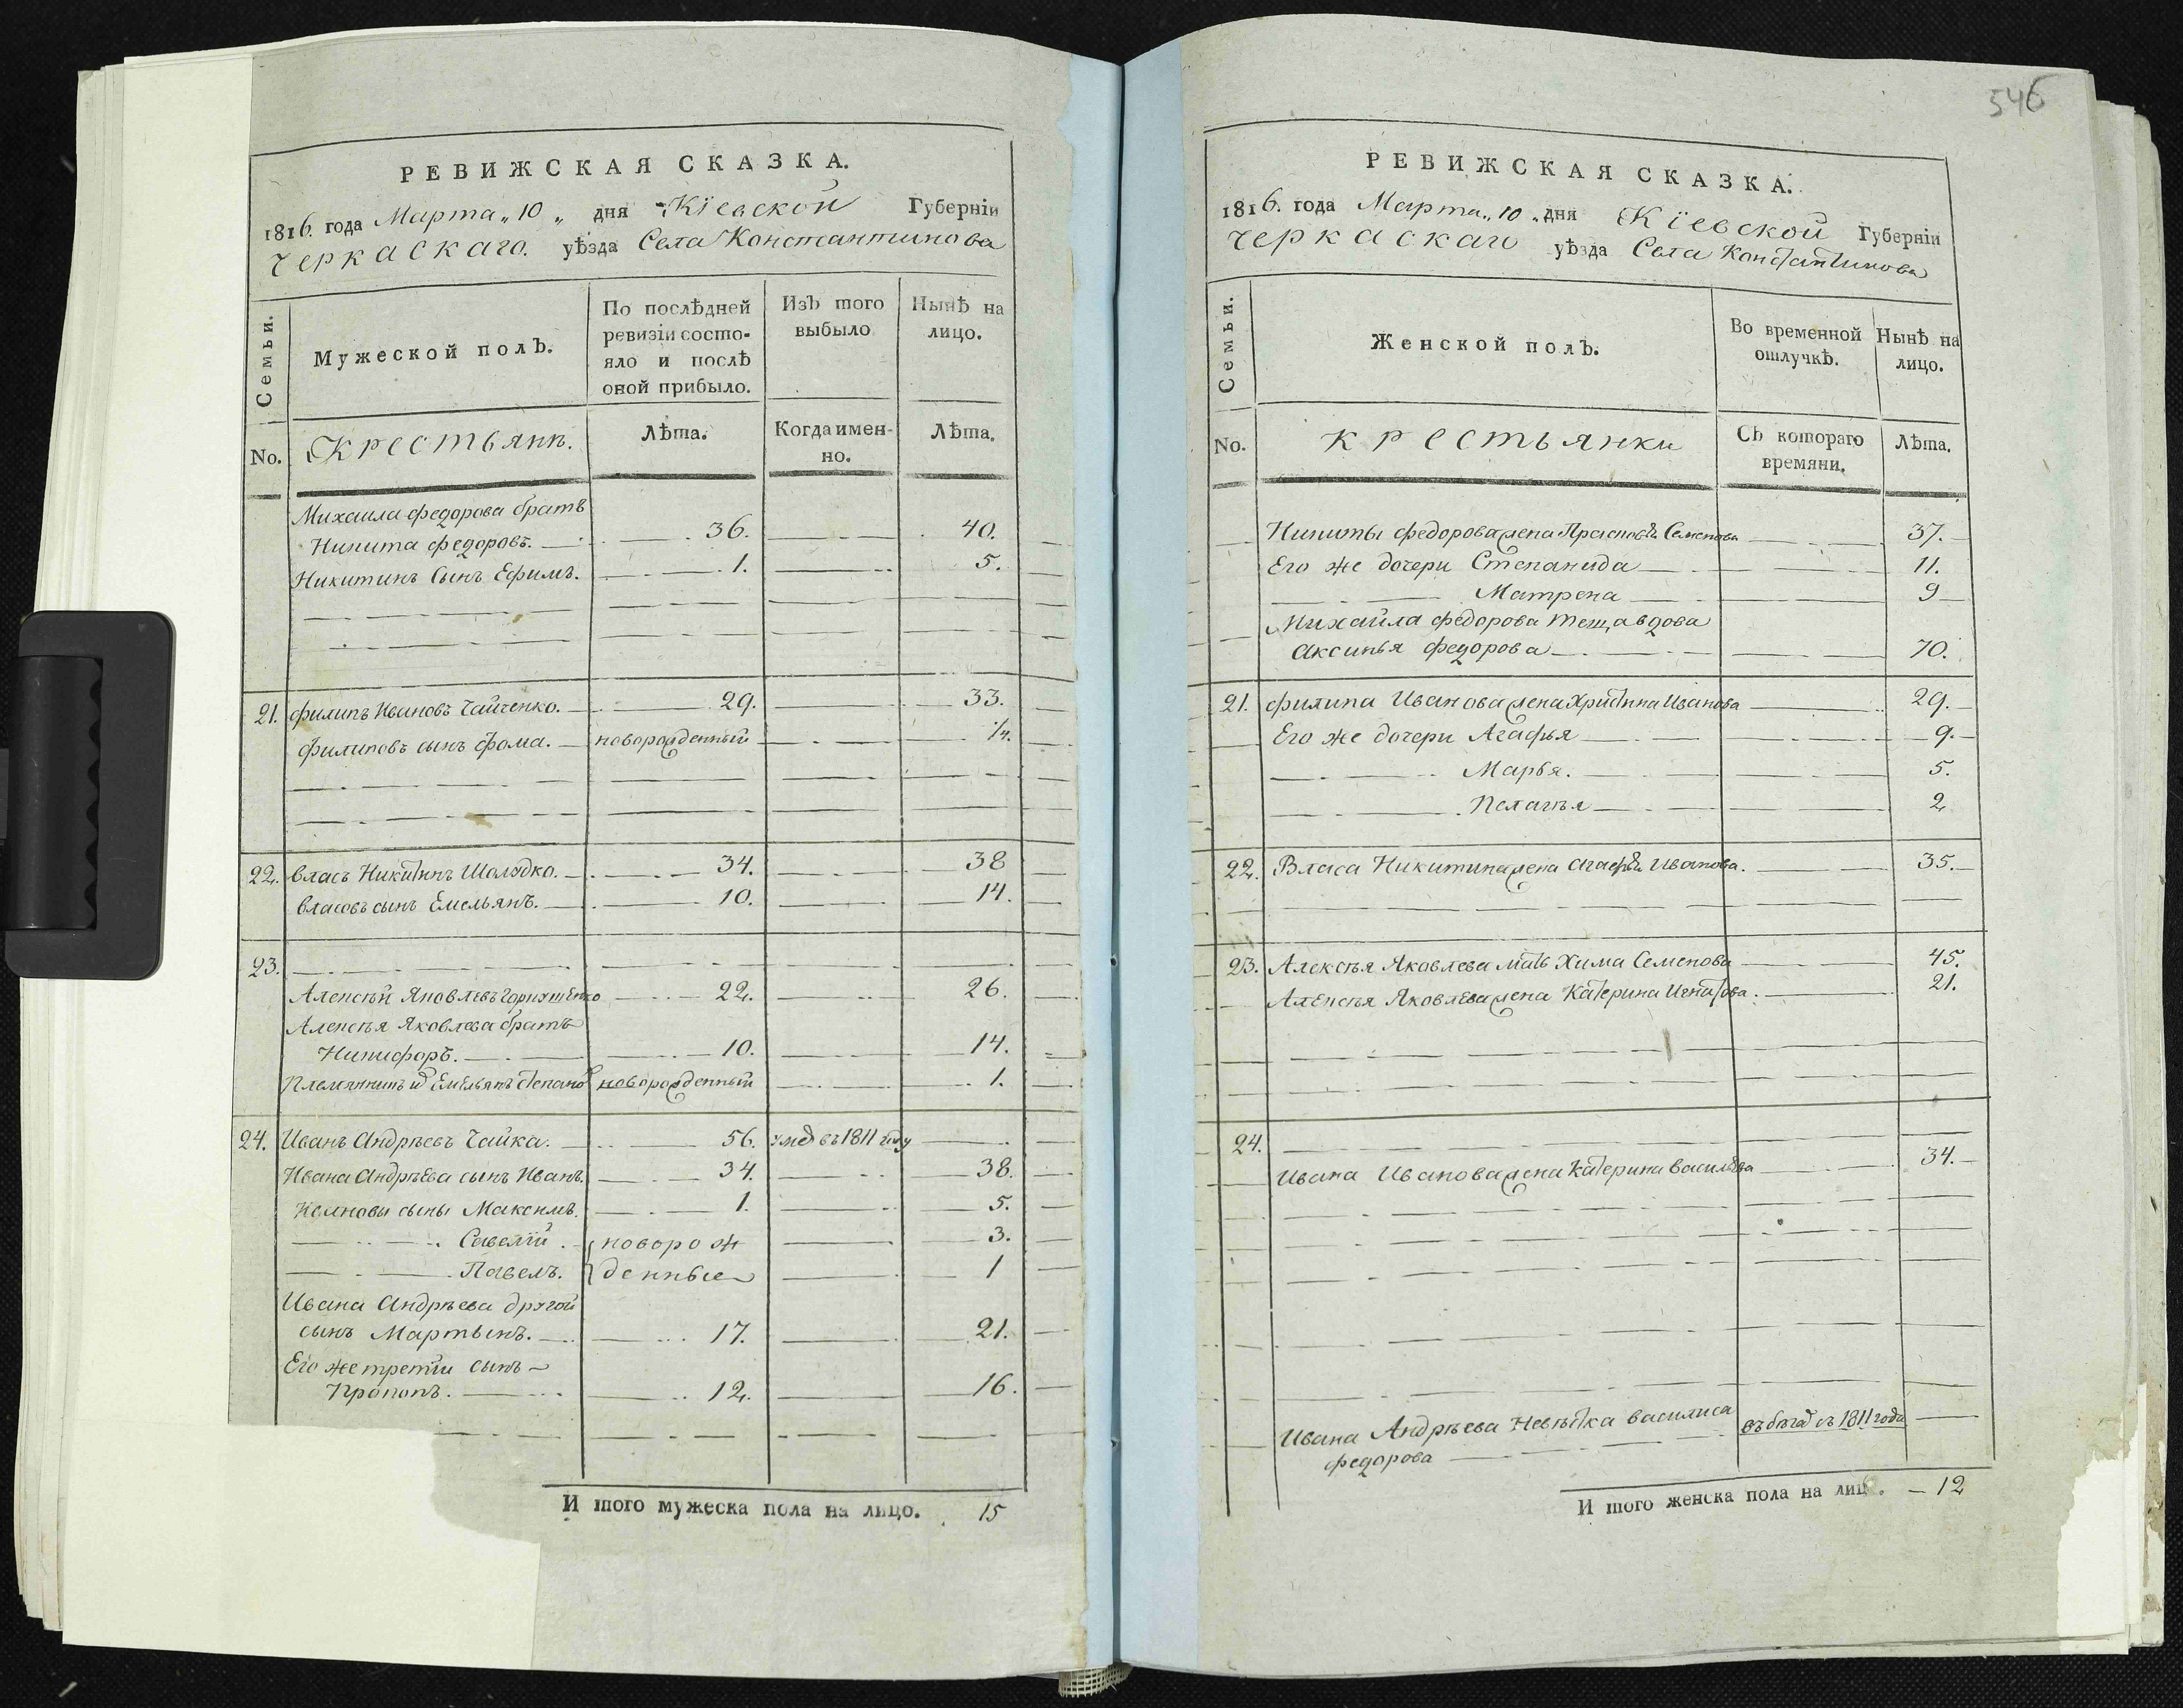 546
РЕВИЖСКАЯ СКАЗКА.
1816. года Марта „10„ дня Кіевской Губерніи
Черкаскаго. уѣзда Села Константинова
Семьи.
Мужеской полъ.
По послѣдней ревизіи состояло и послѣ оной прибыло.
Изъ того выбыло
Нынѣ на лицо.
No.
Крестьянъ.
Лѣта.
Когда именно.
Лѣта.
Михаила федорова братъ
Никита федоровъ. 36. 40.
Никитинъ сынъ Ефимъ. 1. 5.
21. филипъ Ивановъ Чайченко. 29. 33.
филиповъ сынъ фома. новорожденный
22. власъ Никитинъ 34. 38
власовъ сынъ Емельянъ. 10. 14.
23.
Алексѣй Яковлевъ 22. 26.
Алексѣя Яковлева братъ
Никифоръ. 10. 14.
Племянникъ Емельянъ Степановъ новорожденный 1.
24. Иванъ Андрѣевъ Чайка. 56. умер въ 1811 году
Ивана Андрѣева сынъ Иванъ. 34. 38.
Ивановы сыны Максимъ. 1. 5.
Савелій. новорож 3.
Павелъ. денные 1
Ивана Андрѣева другой
сынъ Мартынъ. 17. 21.
Его же третій сынъ
Прокопъ. 12. 16.
И того мужеска пола на лицо. 15
РЕВИЖСКАЯ СКАЗКА.
1816. года Марта „10„ дня Кіевской Губерніи
Черкаскаго уѣзда Села Константинова
Семьи.
Женской полъ.
Во временной отлучкѣ.
Нынѣ на лицо.
No.
крестьянки
Съ котораго времяни.
Лѣта.
Никиты федорова жена Прасковья Семенова 37.
Его же дочери Степанида 11.
Матрена 9
Михайла федорова теща вдова
Аксинья федорова 70.
21. филипа Иванова жена Христина Иванова 29.
Его же дочери Агафья 9.
Марья. 5.
Пелагѣя 2
22. Власа Никитина жена Агафья Иванова. 35.
23. Алексѣя Яковлева мать Хима Семенова 45.
Алексѣя Яковлева жена Катерина Игнатова. 21.
24.
Ивана Иванова жена Катерина васильева 34.
Ивана Андрѣева Невѣстка василиса
федорова въ бѣгах съ 1811 года
И того женска пола на лицо. 12